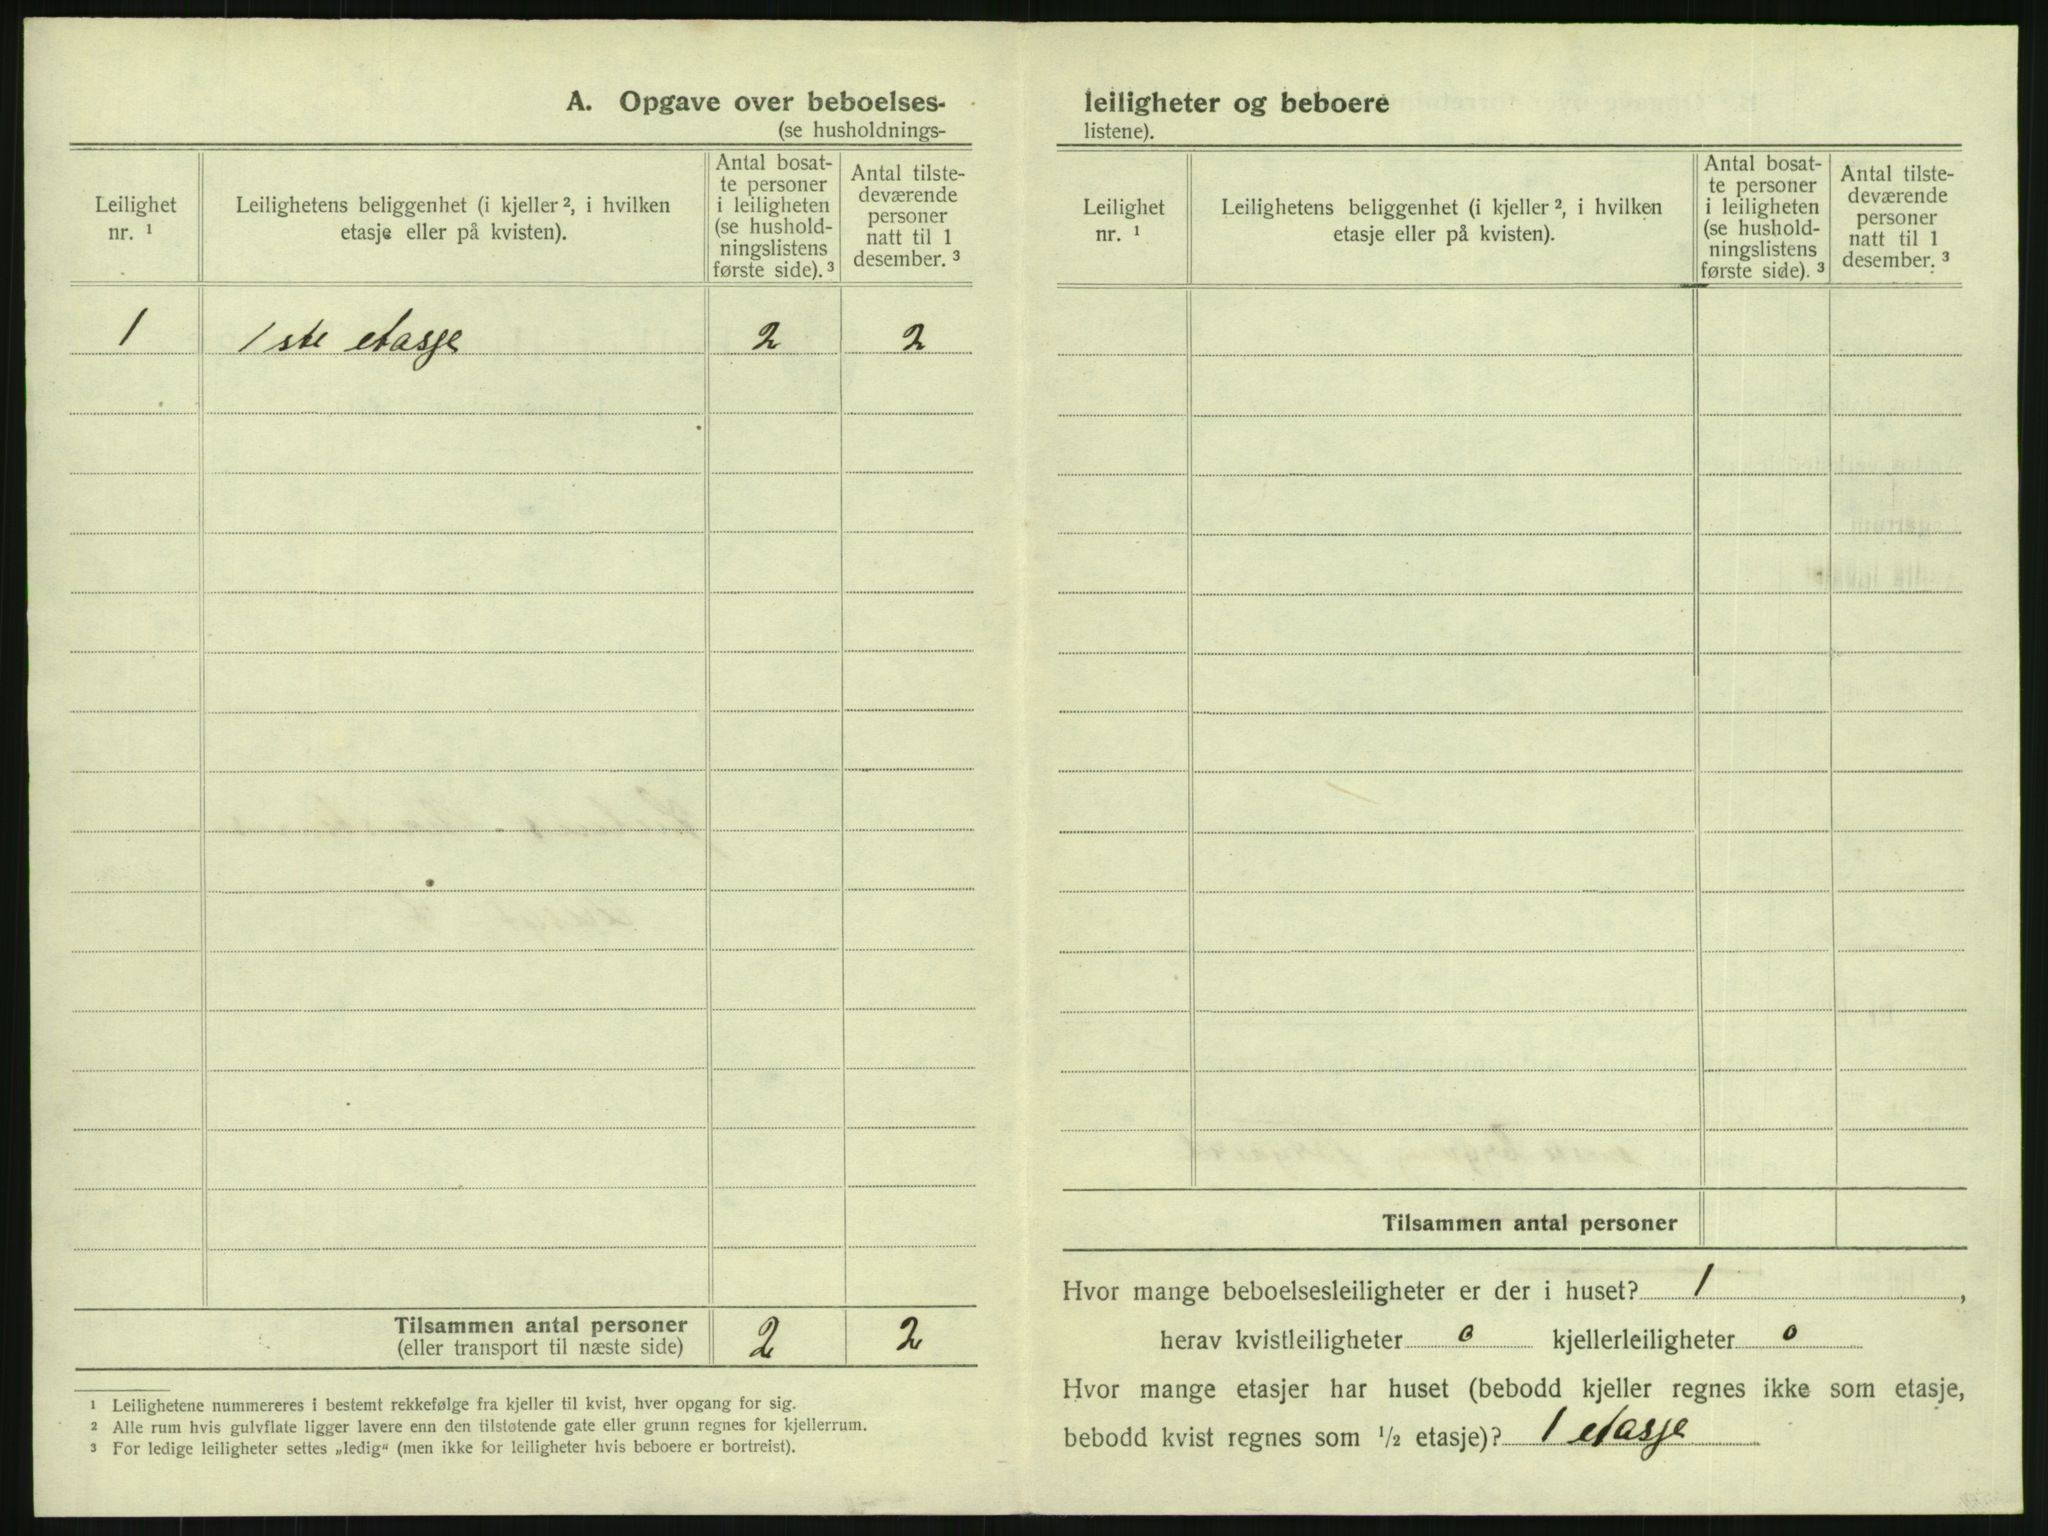 A. Opgave over beboelses-
(se husholdnings-
Leilighet
nr. ¹
Leilighetens beliggenhet (i kjeller ², i hvilken
etasje eller på kvisten).
Antal bosat-
te personer
i leiligheten
(se hushold-
ningslistens
første side). ³
Antal tilste-
deværende
personer
natt til 1
desember. ³
1 1ste etasje 2 2
Tilsammen antal personer 2 2
(eller transport til næste side)
¹ Leilighetene nummereres i bestemt rekkefølge fra kjeller til kvist, hver opgang for sig.
² Alle rum hvis gulvflate ligger lavere enn den tilstøtende gate eller grunn regnes for kjellerrum.
³ For ledige leiligheter settes „ledig“ (men ikke for leiligheter hvis beboere er bortreist).
leiligheter og beboere
listene).
Leilighet
nr. ¹
Leilighetens beliggenhet (i kjeller ², i hvilken
etasje eller på kvisten).
Antal bosat-
te personer
i leiligheten
(se hushold-
ningslistens
første side). ³
Antal tilste-
deværende
personer
natt til 1
desember. ³
Tilsammen antal personer
Hvor mange beboelsesleiligheter er der i huset? 1,
herav kvistleiligheter 0 kjellerleiligheter 0
Hvor mange etasjer har huset (bebodd kjeller regnes ikke som etasje,
bebodd kvist regnes som ½ etasje)? 1 etasje